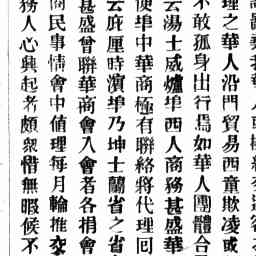 理之華人沿門貿易西童欺凌或
不敢孤身出行焉如華人團體合
云湯士威爐埠西人商務甚盛華
使埠中華商極有聯絡將代理回
云庇厘時濱埠乃坤士蘭省之省
甚盛曾聯華商會入會者各捐會
商民事情會中値理每月輪推交
務人心興起者頗衆惜無暇候不